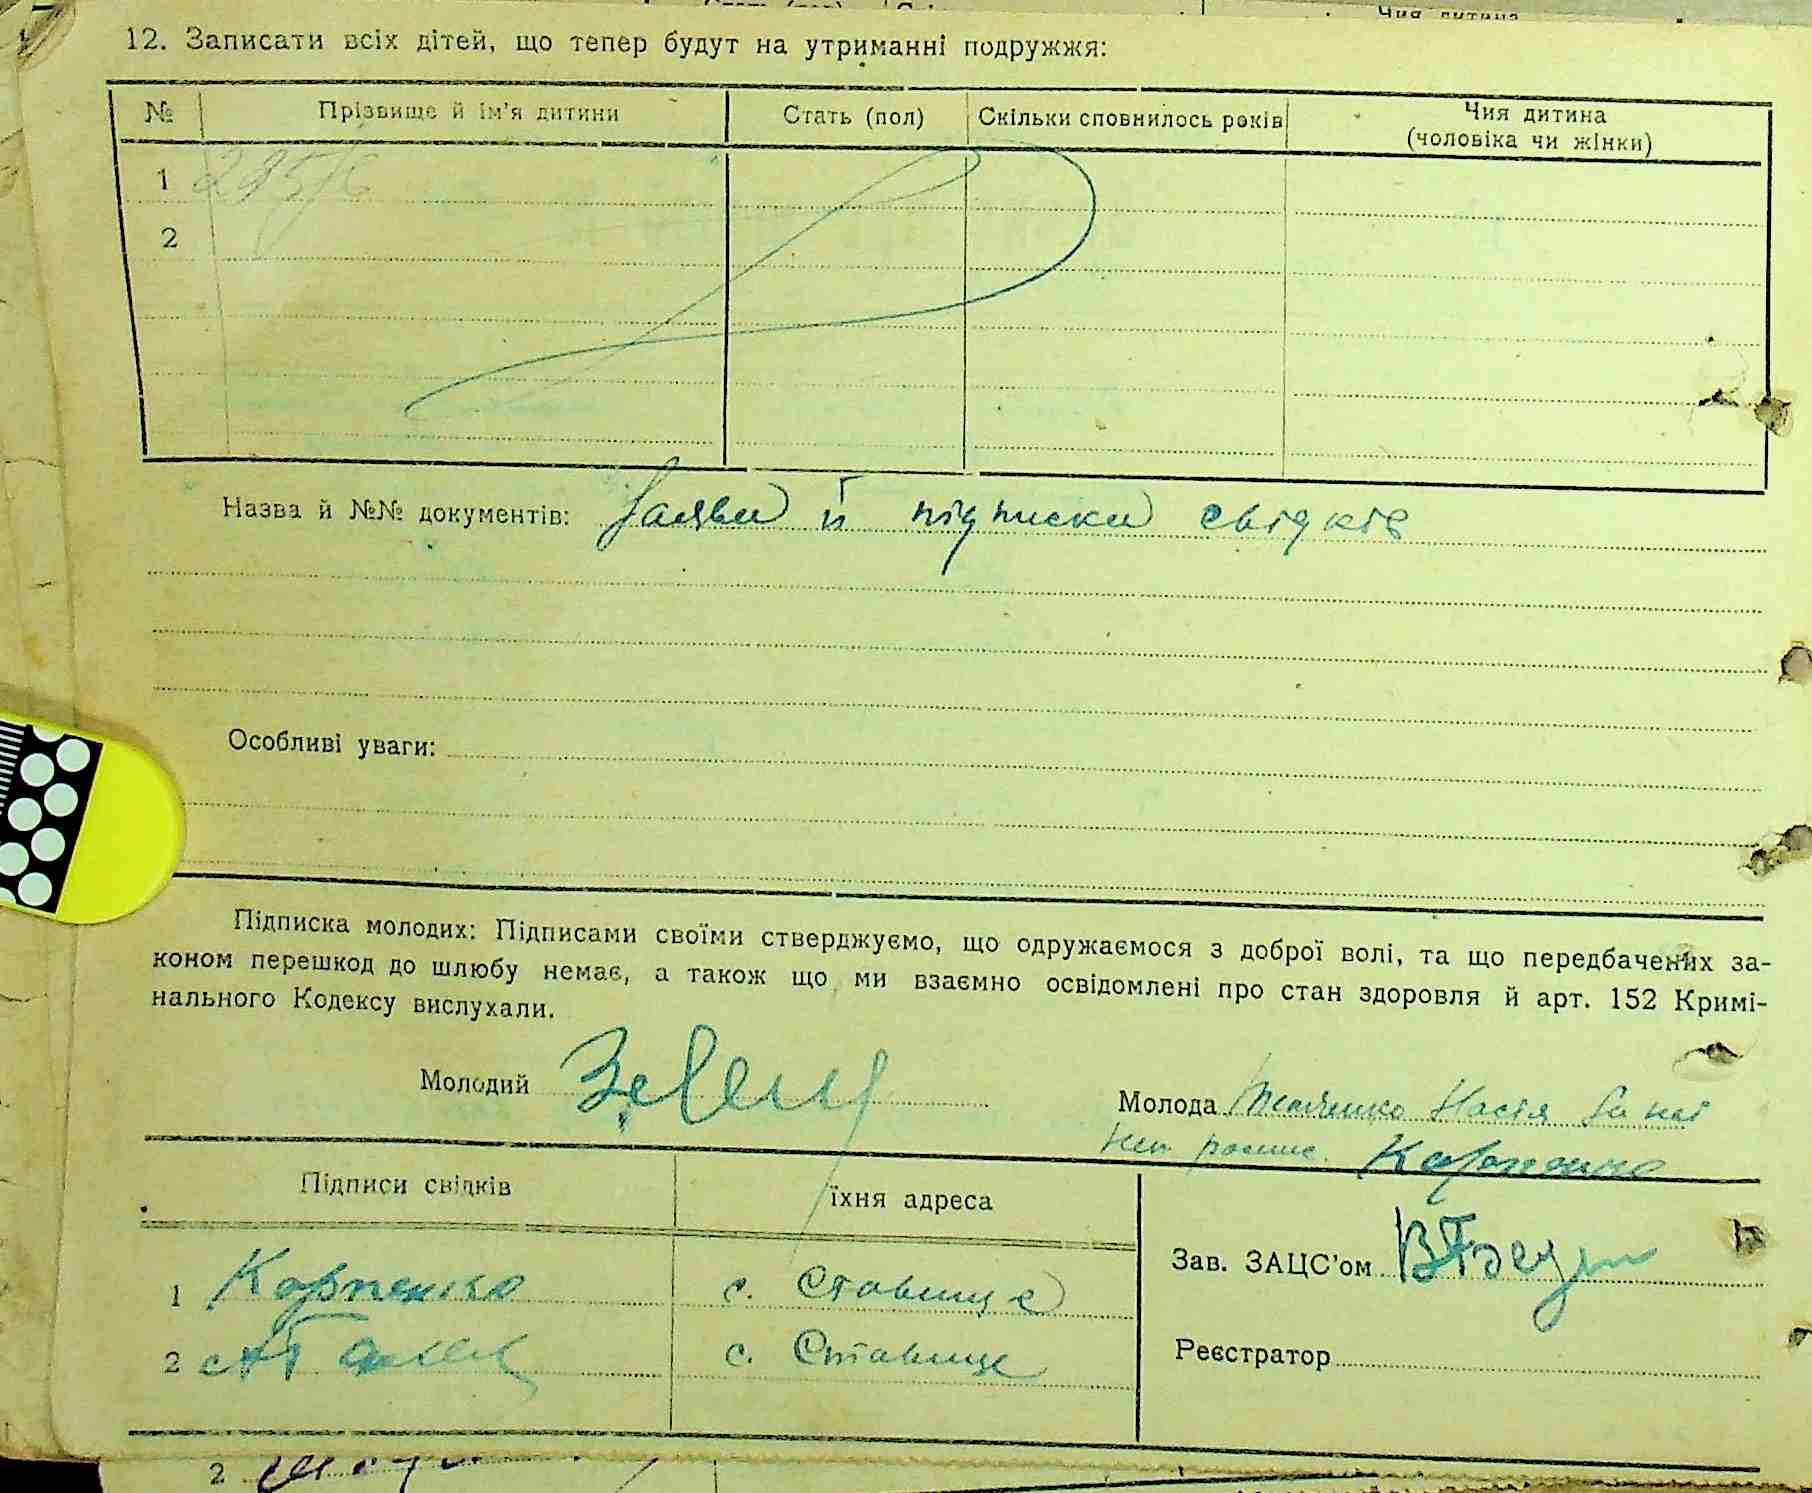 12. Записати всіх дітей, що тепер будут на утриманні подружжя:
№ Прізвище й ім'я дитини Стать (пол) Скільки сповнилось років Чия дитина
(чоловіка чи жінки)
1
2
Назва й №№ документів: Заяви й підписки свідків
Особливі уваги:
Підписка молодих: Підписами своїми стверджуємо, що одружаємося з доброї волі, та що передбачених за-
коном перешкод до шлюбу немає, а також що ми взаємно освідомлені про стан здоровля й арт. 152 Кримі-
нального Кодексу вислухали.
Молодий
Молода Настя за неї
Карпенко
Підписи свідків їхня адреса
Зав. ЗАЦС'ом
1 Карпенко с. Ставище
2 с. Ставище
Реєстратор
2